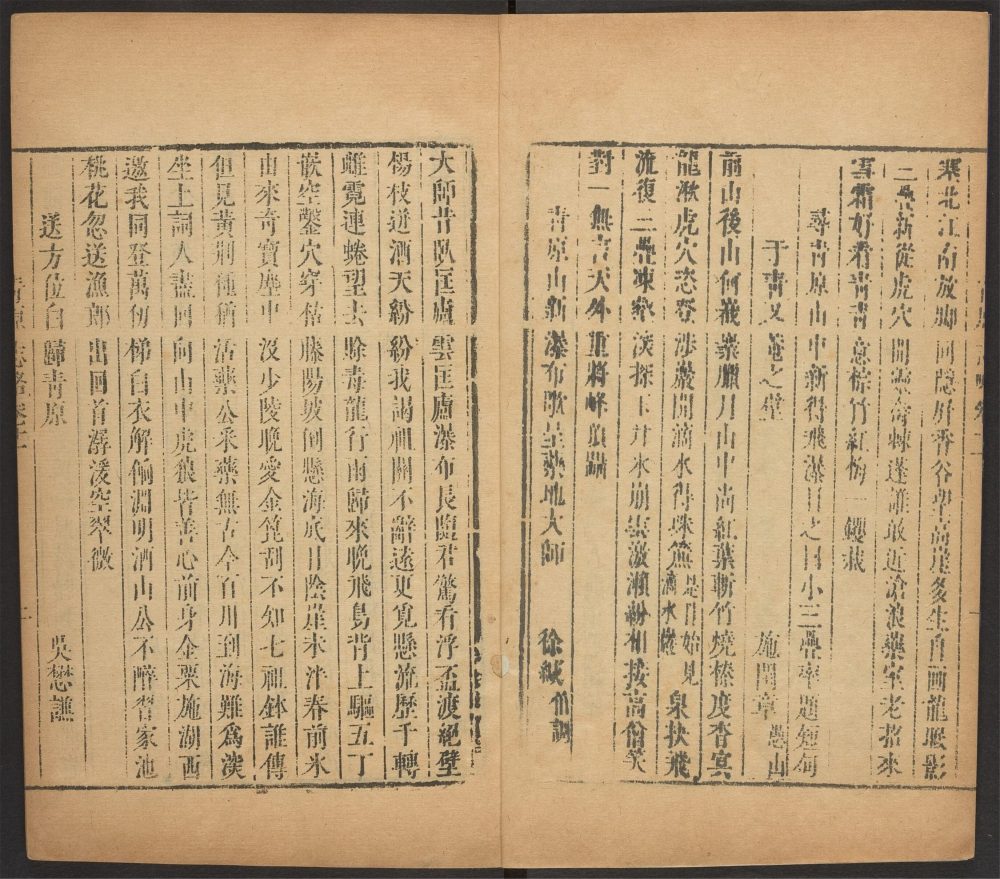 塞北江南放腳回隱屏香谷聖高崖多生自画龍眠影
二疊新從虎穴開靈棘蓬誰敢近滄浪藥室老招來
雪霜好看青青意棕竹紅梅一钁栽
尋青原山中新得飛瀑目之曰小三疊率題短句
于青又菴之壁 施閏章 愚山
前山後山何巀嶪臘月山中尚紅葉斬竹燒榛度杳冥
龍湫虎穴恣登涉巖開滴水得珠簾是日始見滴水巖泉抉飛
流復二疊凍黎淡探玉井水崩雲激瀨紛相接高僧笑
對一無言天外重將峰頂躡
青原山新瀑布歌呈藥地大師 徐緘 伯調
大師昔臥匡廬雲匡廬瀑布長臨君驚看浮盃渡絕壁
楊枝迸洒天紛紛我謁祖關不辭遠更覓懸流歷千轉
雌霓連蜷望去賒毒龍行雨歸來晚飛鳥背上驅五丁
嵌空鑿穴穿枯藤陽坡倒懸海底日陰崖未泮春前氷
由來奇寶塵中沒少陵晚愛金篦刮不知七祖鉢誰傳
但見黃荊種猶活藥公采藥無古今百川到海難為淡
坐上詞人盡回向山中虎狼皆善心前身金粟施湖西
邀我同登萬仞梯白衣解餉淵明酒山公不醉習家池
桃花忽送漁郎出回首潺湲空翠微
送方位白歸青原 吳懋謙
青原志畧卷十